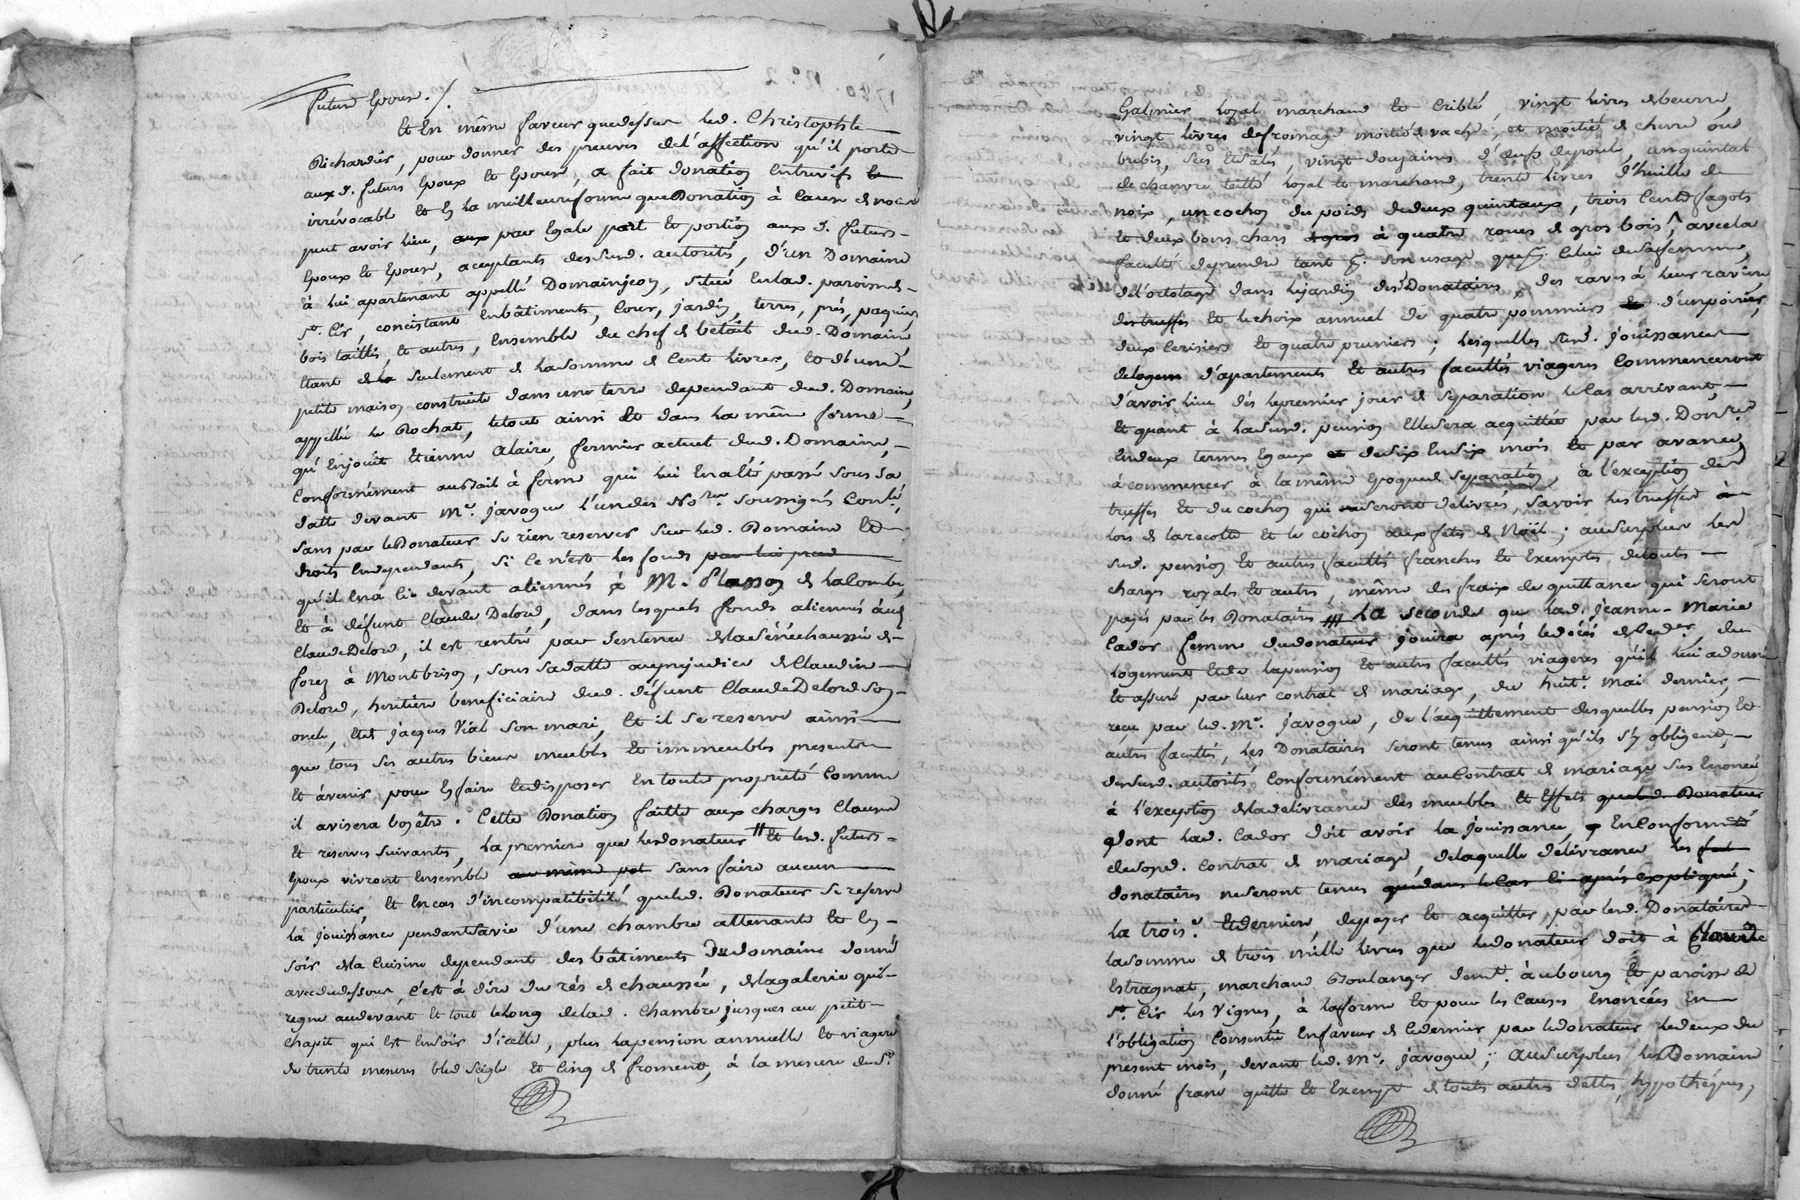 future Epouse ./.
Et En même faveur quedessus led. Christophle
Richardier, pour donner des preuves del'affection qu'il porte
aux d. futurs Epoux et Epouse, a fait donation Entrevifs
irrévocable et En la meilleure forme queDonation à Cause de noces
peut avoir lieu, par Egale part et portion aux d. futurs
Epoux et Epouse, acceptants desSusd. autorités, d'un Domaine
à lui apartenant appellé Domainjeon, situé Enlad. paroisse
St. Cir, concistant Enbâtiments, Cour, jardin, terres, prés, paquiers,
bois taillis, et autres, Ensemble du chef de bétail dud. Domaine,
Etant de la seulement de la Somme de Cent livres, et d'une
petite maison construite dans une terre dependant dud. Domaine,
appellée le Rochat, letout ainsi et dans la même forme
qu'Enjouit Etienne Alaire, fermier actuel dud. Domaine,
Conformément auBail à ferme qui lui En a été passé sous sa
datte devant Me. javogue l'undes Nores. soussignés Conler.
Sans par leDonateur Se rien reserver Sur led. Domaine et
droits Endependants, Si ce n'est les fonds par lui
qu'il En a ci devant aliennés à M. Plasson de laCombe,
Et à défunt Claude Delord, dans lesquels fonds aliennés aud.
ClaudeDelord, il est rentré par Sentence delaSénéchaussée de
forez à Montbrison, sous Sadatte aupréjudice de Claudine
Delord, heritiere beneficiaire dud. défunt ClaudeDelord Son
oncle, Et jacques Vial Son mari, Et il Se reserve ainsi
que tous Ses autres biens meubles Et immeubles presents
Et àvenir, pour En faire Etdisposer En toute propriété Comme
il avisera bon être. Cette Donation faitte aux charges Clauses
Et reserves suivantes, La premiere que ledonateur Et led. futurs
Epoux vivront Ensemble au même pot sans faire aucun
particulier, Et En cas d'incompatibilité queled. Donateur Se reserve
La jouissance pendantSavie d'une chambre attenante Et En
soir dela Cuisine dependant des bâtiments Du domaine donné
avec dudessous, C'est à dire du rés de chaussée, delagalerie qui
regne audevant Et tout lelong delad. Chambre jusques au petit
chapit qui Est En soir d'icelle, plus lapension annuelle Et viagere
de trente mesures bled Seigle Et Cinq de froment, à la mesure de St.
Galmier loyal marchand Et Criblé, vingt livres debeurre,
vingt livres defromage moitié de vache, et moitié de chevre ou
brebis, Secs Et Salés, vingt douzaines d'œufs depoule, unquintal
de chanvre teillé loyal Et marchand, trente livres d'huille de
noix, un cochon du poids dedeux quintaux, trois Cents fagots
Et deux bons chars à quatre roues de gros bois, avec la
faculté deprendre tant pr. Son usage que pr. Celui desafemme,
del'ortolage dans lejardin des Donataires, des raves à leur raviere
des truffes Et lechoix annuel de quatre pommiers d'unpoirier,
deux Cerisiers Et quatre pruniers; lesquelles Susd. jouissances
delogem d'apartements Et autres facultés viageres Commenceront
d'avoir lieu dés lepremier jour de Separation leCas arrivant
Et quant à laSusd. pension Elle Sera acquittée par lesd. Donres.
Endeux termes Egaux de Six En Six mois Et par avance,
à commencer à la même Epoque de Separation, à l'exception des
truffes Et du cochon qui Seront delivrés, Savoir les truffes
lors de larecolte Et le cochon aux fetes de Noël; auSurplus les
Susd. pension Et autres facultés franches Et Exemptes detoutes
charges royales Et autres, même des fraix de quittance qui Seront
payés par les Donataires La Seconde que lad. jeanne-Marie
Cador femme dudonateur jouira après ledécés deCeder., du
logement Et de lapension Et autres facultés viageres qu'il lui adonné
Et assuré par leur contrat de mariage, du huite. mai dernier,
recu par led. Me. javogue, de l'acquittement desquelles pension Et
autres facultés, les Donataires Seront tenus ainsi qu'ils S'y obligent,
desSusd. autorités, Conformément auContrat de mariage Sus Enoncé
à l'exception deladelivrance des meubles Et Effets queled. Donateur
Dont lad. Cador doit avoir la jouissance, EnConformité
deSond. Contrat de mariage, delaquelle délivrance les
donataires neSeront tenus quedans leCas Ci après Expliqué;
La trois.e Etderniere, depayer Et acquitter, par lesd. Donataires
lasomme de trois mille livres que ledonateur doit à
Estragnat, marchand Boulanger demt. àubourg Et paroisse de
St. Cir les Vignes, à laforme Et pour les Causes Enoncées En
l'obligation Consentie Enfaveur de Cedernier par ledonateur ledeux du
present mois, devant led. Me. javogue; auSurplus le Domaine
donné franc quitte Et Exempt de toutes autres dettes, hypothéques,